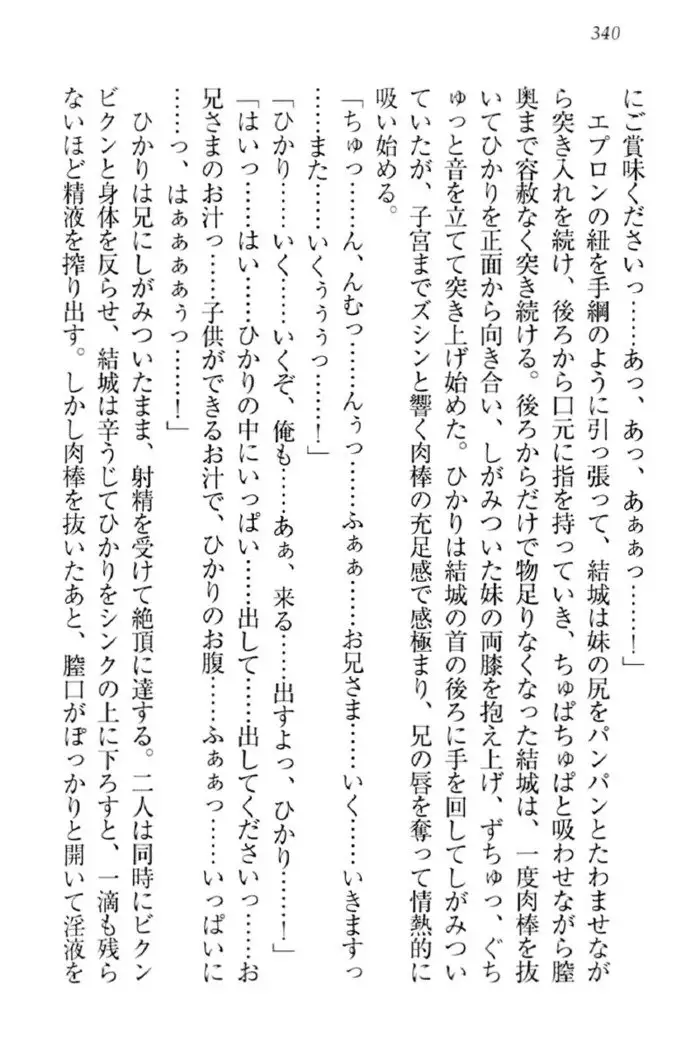 340
にご賞味くださいっ……あっ、あっ、あぁぁっ……！」
　エプロンの紐を手綱のように引っ張って、結城は妹の尻をパンパンとたわませなが
ら突き入れを続け、後ろから口元に指を持っていき、ちゅぱちゅぱと吸わせながら膣
奥まで容赦なく突き続ける。後ろからだけで物足りなくなった結城は、一度肉棒を抜
いてひかりを正面から向き合い、しがみついた妹の両膝を抱え上げ、ずちゅっ、ぐち
ゅっと音を立てて突き上げ始めた。ひかりは結城の首の後ろに手を回してしがみつい
ていたが、子宮までズシンと響く肉棒の充足感で感極まり、兄の唇を奪って情熱的に
吸い始める。
「ちゅっ……ん、んむっ……んぅっ……ふぁぁ……お兄さま……いく……いきますっ
……また……いくぅぅぅっ……！」
「ひかり……いく……いくぞ、俺も……あぁ、来る……出すよっ、ひかり……！」
「はいっ……はい……ひかりの中にいっぱい……出して……出してくださいっ……お
兄さまのお汁っ……子供ができるお汁で、ひかりのお腹……ふぁぁっ……いっぱいに
……っ、はぁぁぁぁぅっ……！」
　ひかりは兄にしがみついたまま、射精を受けて絶頂に達する。二人は同時にビクン
ビクンと身体を反らせ、結城は辛うじてひかりをシンクの上に下ろすと、一滴も残ら
ないほど精液を搾り出す。しかし肉棒を抜いたあと、膣口がぽっかりと開いて淫液を